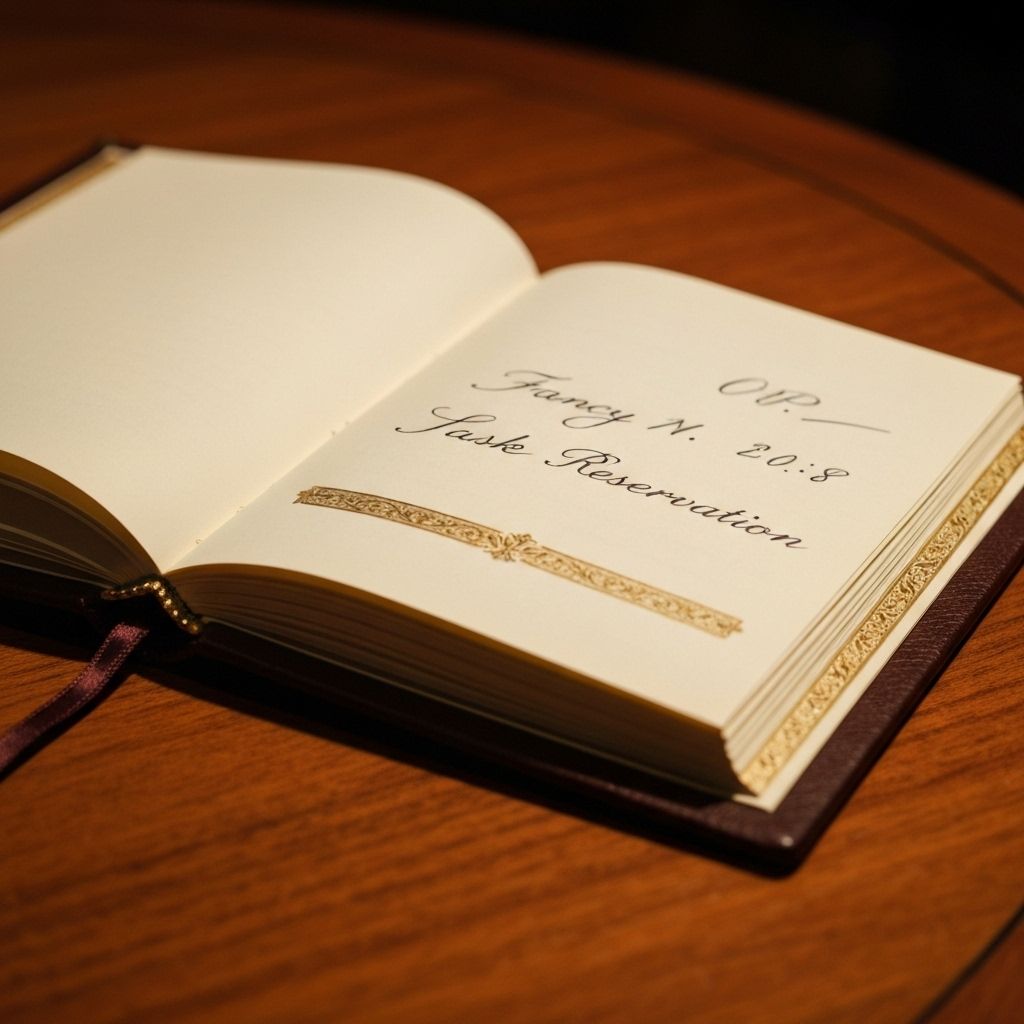 OP.
Fancy N. 20.:8
Sask Reservation